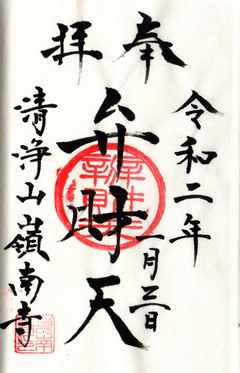 奉拝
令和二年
一月三日
弁財天
清浄山嶺南寺